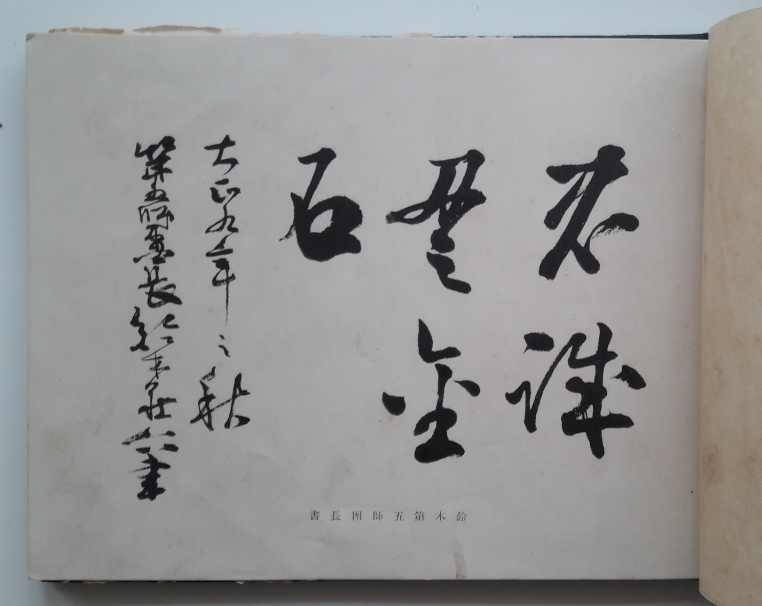 誠
貫金
石
大正九年之秋
第五師團長鈴木荘六書
鈴木第五師團長書